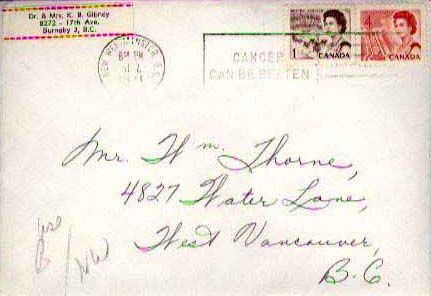 Dr. & Mrs. K. B. Gibney
8272 - 17th Ave.
Burnaby 3, B.C.
NEW WESTMINSTER B.C.
PM
CANCER
CAN BE BEATEN
CANADA
4
CANADA
Mr. Wm. Thorne,
4827 Water Lane,
West Vancouver,
B.C.
NW